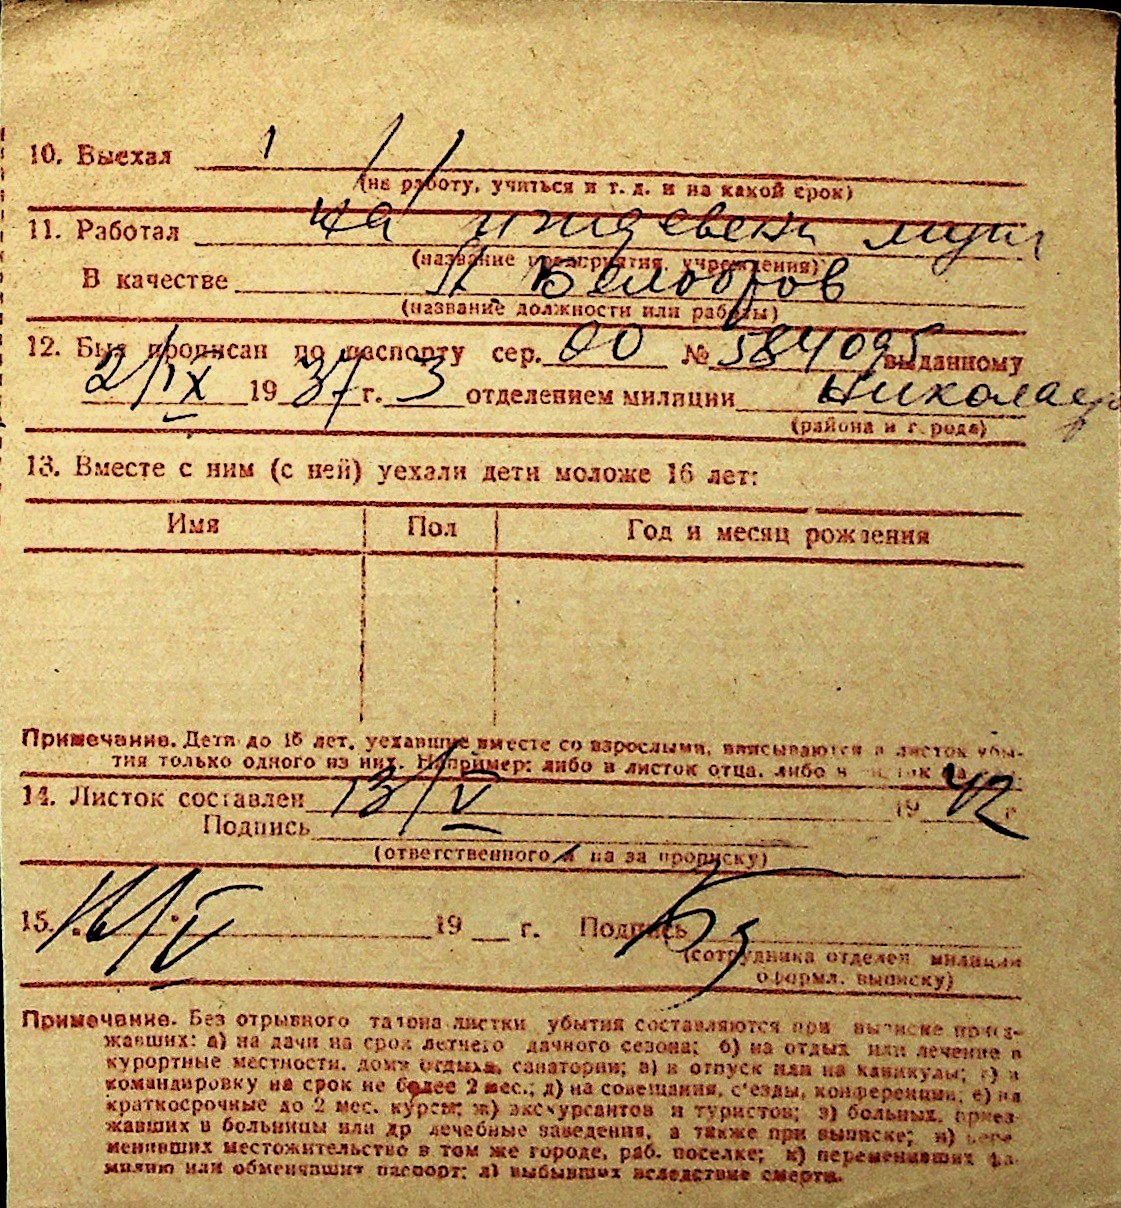 10. Выехал
(на работу, учиться и т. д. и на какой срок)
11. Работал на иждевени
(название предприятия, учреждения)
В качестве
(название должности или работы)
12. Был прописан по паспорту сер. 00 № 584095 выданному
2/IX 1937 г. 3 отделением милиции Николаев
(района и города)
13. Вместе с ним (с ней) уехали дети моложе 16 лет:
Имя Пол Год и месяц рождения
Примечание. Дети до 16 лет, уехавшие вместе со взрослыми, вписываются в листок убы-
тия только одного из них. Например: либо в листок отца, либо
14. Листок составлен 13/V 1942 г.
Подпись
(ответственного за прописку)
15. 16/V 19 г. Подпись
(сотрудника отделен. милиции
оформл. выписку)
Примечание. Без отрывного талона листки убытия составляются при выписке приез-
жавших: а) на дачи на срок летнего дачного сезона; б) на отдых или лечение в
курортные местности, дома отдыха, санатории; в) в отпуск или на каникулы; г) в
командировку на срок не более 2 мес.; д) на совещания, съезды, конференции; е) на
краткосрочные до 2 мес. курсы; ж) экскурсантов и туристов; з) больных, приез-
жавших в больницы или др лечебные заведения, а также при выписке; и) пере-
менивших местожительство в том же городе, раб. поселке; к) переменивших фа-
милию или обменявших паспорт; л) выбывших вследствие смерти.